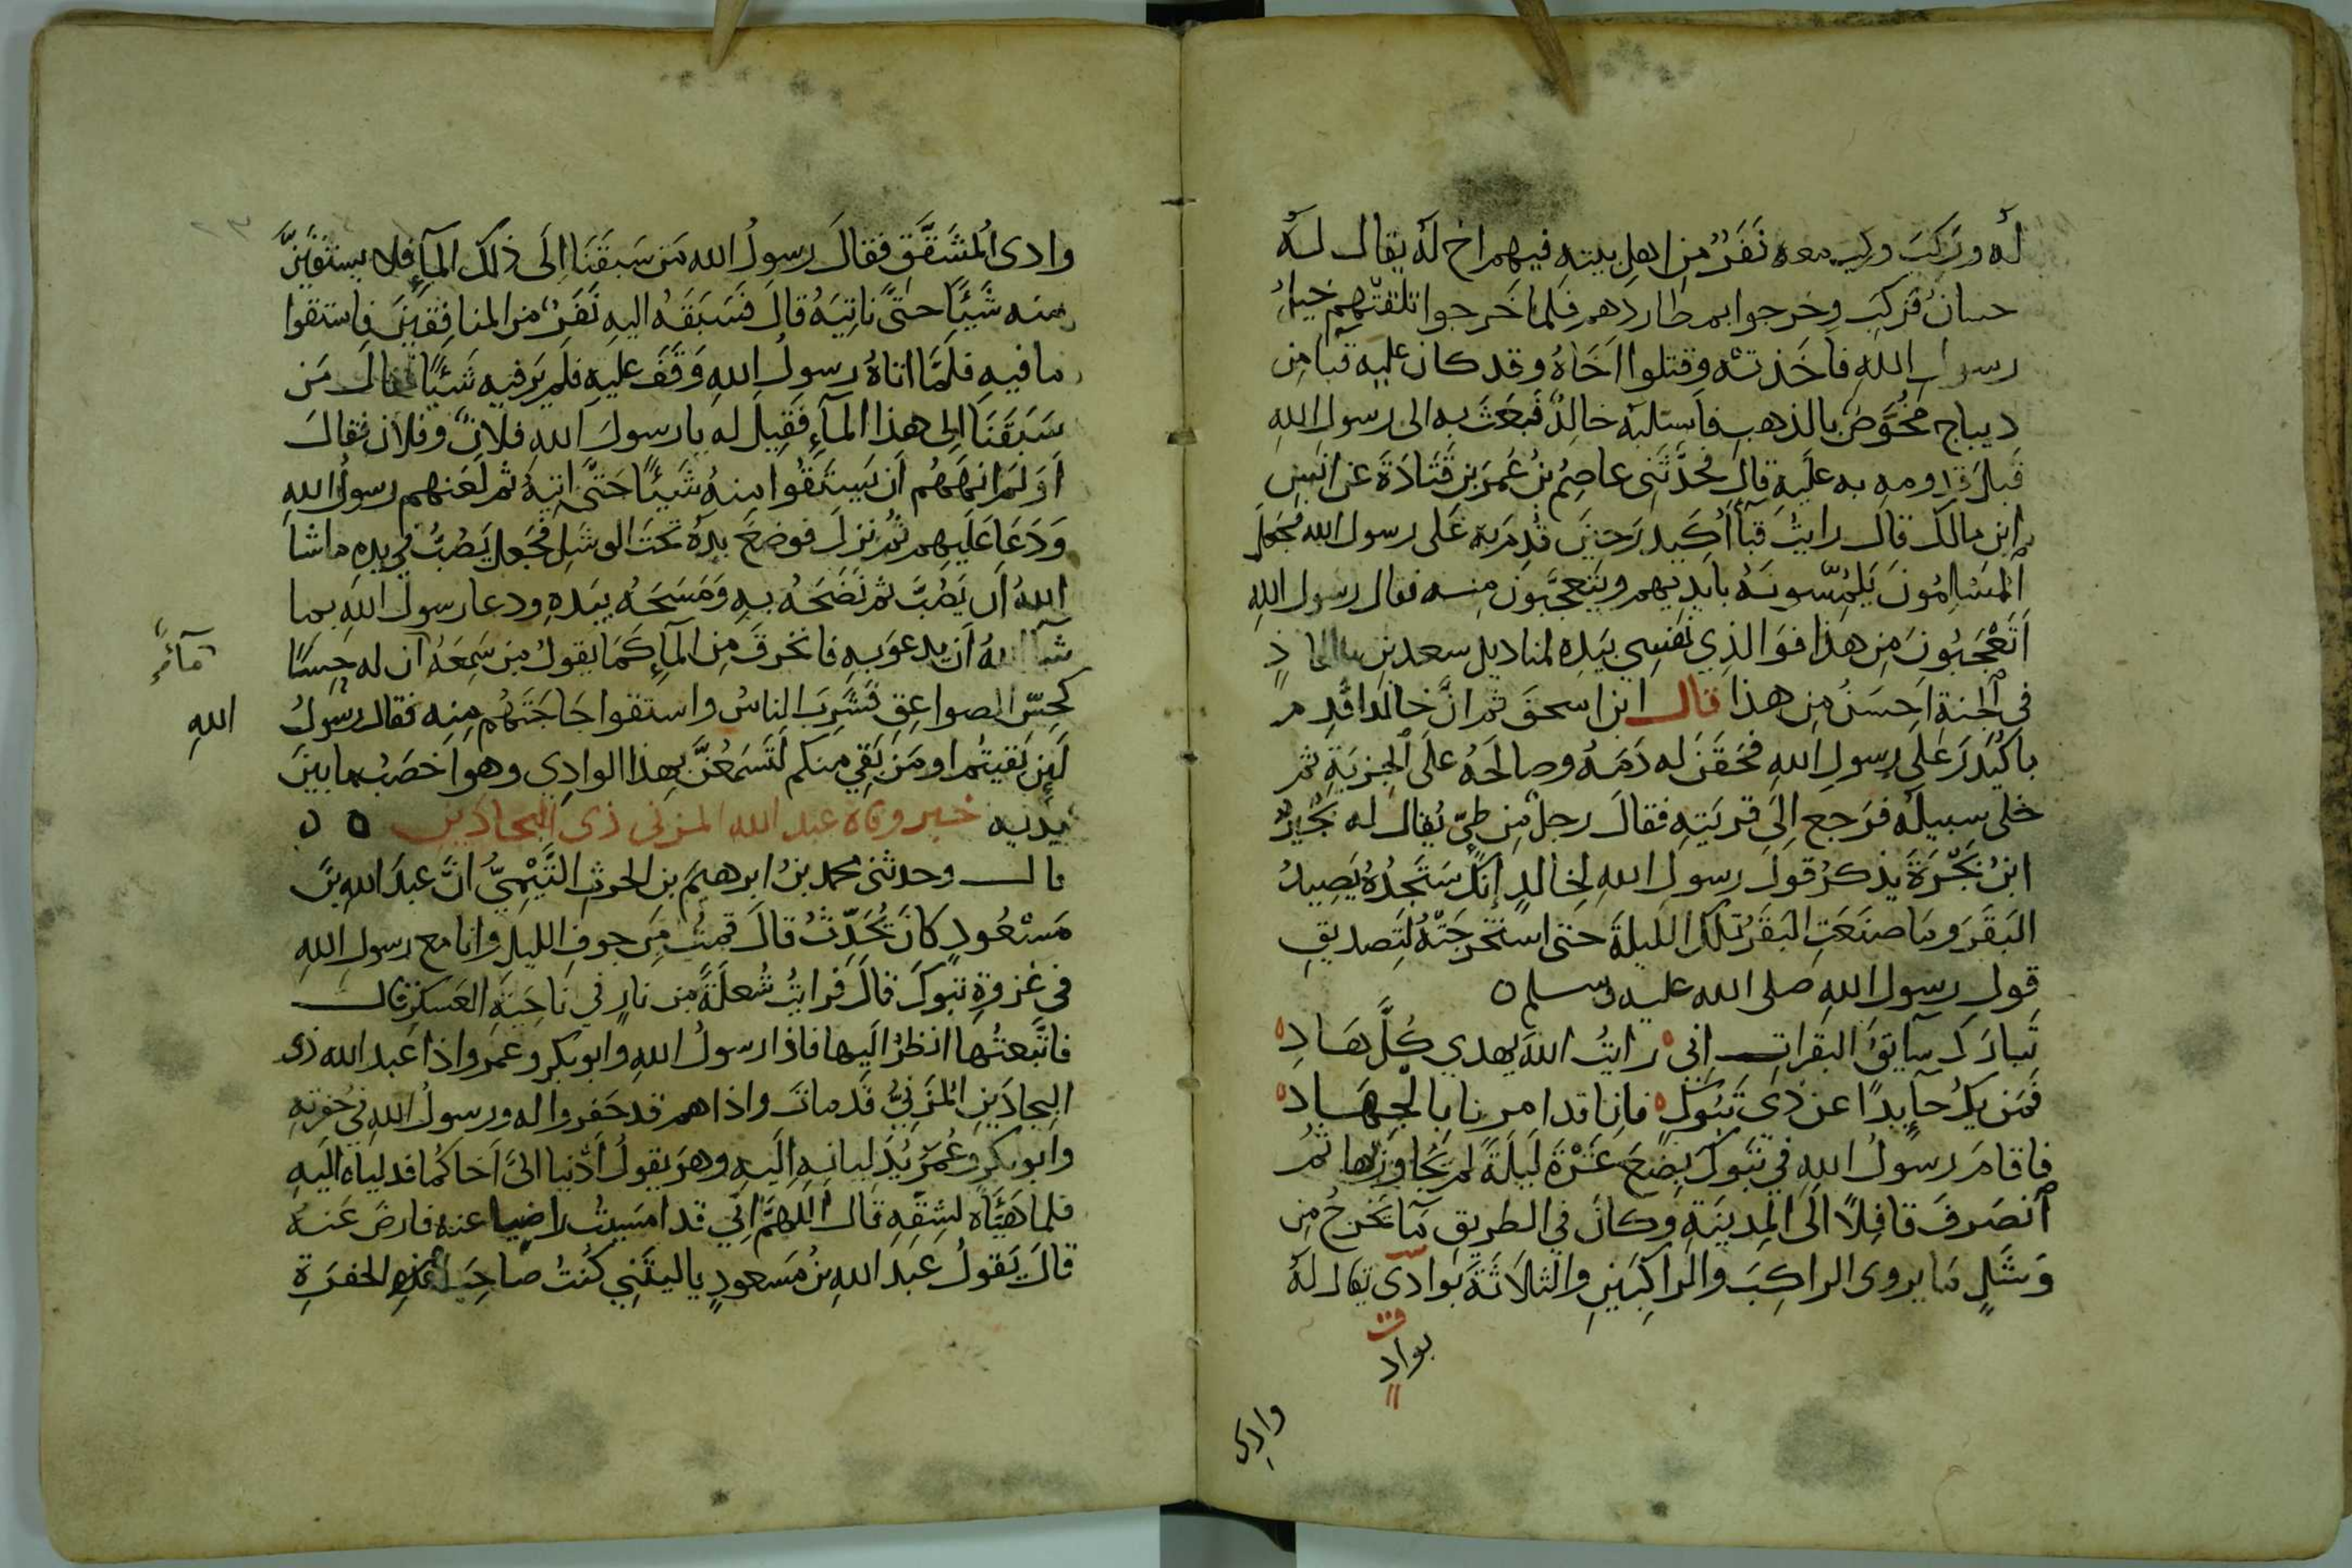 له وركب وركب معه نفر من اهل بيته فيهم اخ له يقال له
حسان فركب وخرجوا بمطاردهم فلما خرجوا تلقتهم خيل
رسول الله فاخذته وقتلوا اخاه وقد كان عليه قبا من
ديباج مخوص بالذهب فاستلبه خالد فبعث به الى رسول الله
قبل قدومه به عليه قال فحدثني عاصم بن عمر بن قتادة عن انس
ابن مالك قال رايت قبا أكيدر حين قدم به على رسول الله فجعل
المسلمون يلمسونه بايديهم ويتعجبون منه فقال رسول الله
اتعجبون من هذا فوالذي نفسي بيده لمناديل سعد بن معاذ
في الجنة احسن من هذا قال ابن اسحق ثم ان خالدا قدم
باكيدر على رسول الله فحقن له دمه وصالحه على الجزية ثم
خلى سبيله فرجع الى قريته فقال رجل من طيّ يقال له بجير
ابن بجرة يذكر قول رسول الله لخالد إنك ستجده يصيد
البقر وما صنعت البقر تلك الليلة حتى استخرجته لتصديق
قول رسول الله صلى الله عليه وسلم ٥
تبارك سآيق البقرات إني ه رايت الله يهدي كل هاد ه
فمن يك حآيدا عن ذي تبوك ه فانا قد امرنا بالجهاد ه
فاقام رسول الله في تبوك بضع عشرة ليلة لم يجاوزها ثم
انصرف قافلا الى المدينة وكان في الطريق مآ يخرج من
وشل ما يروى الراكب والراكبين والثلاثة بوادى يقال له
بواد
وادى
وادى المشقق فقال رسول الله من سبقنا الى ذلك المآء فلا يستقين
منه شيئا حتى ناتيه قال فسبقه اليه نفر من المنافقين فاستقوا
ما فيه فلما اتاه رسول الله وقف عليه فلم ير فيه شيئا فقال من
سبقنا الى هذا المآء فقيل له يا رسول الله فلان وفلان فقال
اولم انههم ان يستقوا منه شيئا حتى اتيه ثم لعنهم رسول الله
ودعا عليهم ثم نزل فوضع يده تحت الوشل فجعل يصب في يده ما شا
الله ان يصب ثم نضحه به ومسحه بيده ودعا رسول الله بما
شآ الله أن يدعو به فانخرق من المآء كما يقول من سمعه أن له حسا
مآء
كحس الصواعق فشرب الناس واستقوا حاجتهم منه فقال رسول
الله
لئن بقيتم او من بقي منكم لتسمعن بهذا الوادي وهو اخصب ما بين
يديه خبر وفاة عبد الله المزنى ذى البجادين ٥ ٥
قال وحدثني محمد بن ابرهيم بن الحرث التيمي ان عبد الله بن
مسعود كان يحدث قال قمت من جوف الليل وانا مع رسول الله
في غزوة تبوك قال فرايت شعلة من نار في ناحية العسكر قال
فاتبعتها انظر اليها فاذا رسول الله وابو بكر وعمر واذا عبد الله ذى
البجادين المزني قد مات واذا هم قد حفروا له ورسول الله في حفرته
وابو بكر وعمر يدليانه اليه وهو يقول أدنيا اليّ اخاكما فدلياه اليه
فلما هيّاه لشقه قال اللهم اني قد امسيت راضيا عنه فارض عنه
قال يقول عبد الله بن مسعود يا ليتني كنت صاحب الحفرة